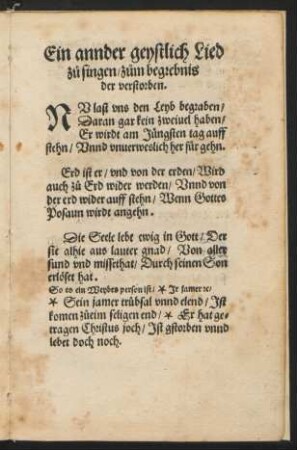 Ein annder geystlich Lied
zů singen/zům begrebnis
der verstorben.
NV last vns den Leyb begraben/
Daran gar kein zweiuel haben/
Er wirdt am Jüngsten tag auff
stehn/ Vnnd vnuerweslich her für gehn.
Erd ist er/ vnd von der erden/ Wird
auch zů Erd wider werden/ Vnnd von
der erd wider auff stehn/ Wenn Gottes
Posaun wirdt angehn.
Die Seele lebt ewig in Gott/ Der
sie alhie aus lauter gnad/ Von aller
sund vnd missethat/ Durch seinen Son
erlöset hat.
So es ein Weybes person ist/ * Jr jamer ꝛc/
* Sein jamer trübsal vnnd elend/ Ist
komen zůeim seligen end/ * Er hat ge-
tragen Christus joch/ Ist gstorben vnnd
lebet doch noch.